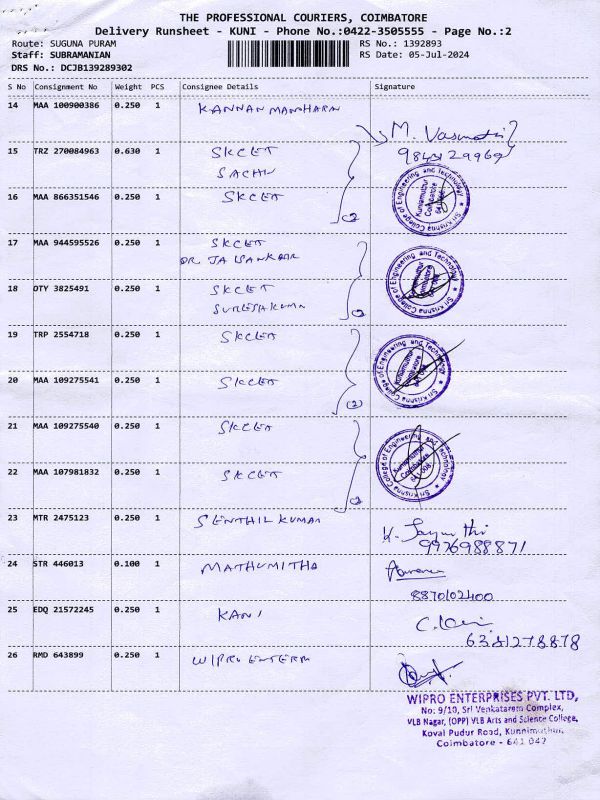 THE PROFESSIONAL COURIERS, COIMBATORE
Delivery Runsheet - KUNI - Phone No.:0422-3505555 - Page No.:2
Route: SUGUNA PURAM
RS No.: 1392893
Staff: SUBRAMANIAN
RS Date: 05-Jul-2024
DRS No.: DCJB139289302
S No Consignment No Weight PCS Consignee Details Signature
14 MAA 100900386 0.250 1 KANNAN MANOHARN
M. Vasmathi
15 TRZ 270084963 0.630 1 SKCET
SACHIN
16 MAA 866351546 0.250 1 SKCET
(2)
Sri Krishna College of Engineering and Technology
Kuniamuthur
Coimbatore
641 008
17 MAA 944595526 0.250 1 SKCET
DR JAISANKAR
18 OTY 3825491 0.250 1 SKCET
SURESHKUMAR
(2)
Sri Krishna College of Engineering and Technology
19 TRP 2554718 0.250 1 SKCET
20 MAA 109275541 0.250 1 SKCET
(2)
Sri Krishna College of Engineering and Technology
21 MAA 109275540 0.250 1 SKCET
22 MAA 107981832 0.250 1 SKCET
(2)
Sri Krishna College of Engineering and Technology
Kuniamuthur
Coimbatore
641 008
23 MTR 2475123 0.250 1 SENTHIL KUMAR
K. Jayanthi
9976988871
24 STR 446013 0.100 1 MATHUMITHA
8870102400
25 EDQ 21572245 0.250 1 KANI
6381278878
26 RMD 643899 0.250 1 WIPRO ENTERPR
WIPRO ENTERPRISES PVT. LTD,
No: 9/10, Sri Venkataram Complex,
VLB Nagar, (OPP) VLB Arts and Science College,
Koval Pudur Road, Kunnimuthur,
Coimbatore - 641 042